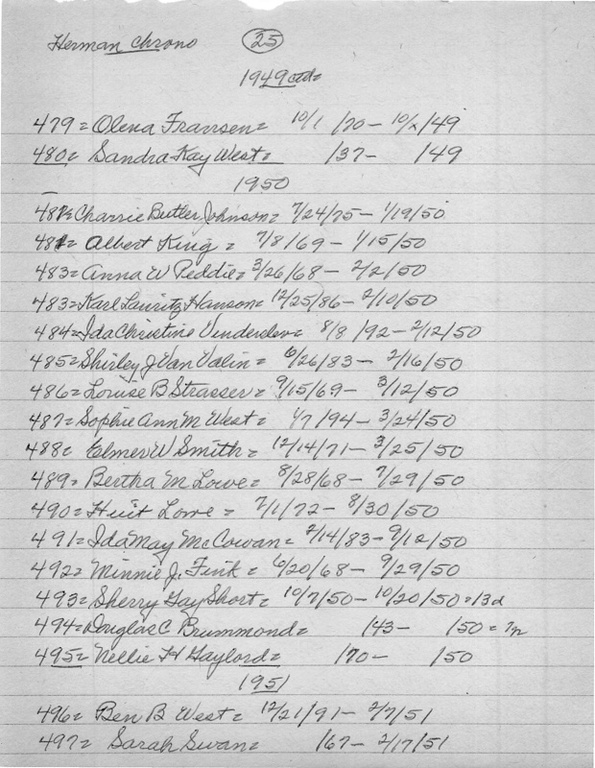 Herman Chrono 25
1949 ctd=
479= Olena Fransen= 10/1/70 - 10/x/49
480= Sandra Kay West= /37- /49
1950
Charrie Butler Johnson= 7/24/75 - 1/19/50
Albert King = 7/8/69 - 1/15/50
483= Anna W Peddie= 3/26/68 - 2/2/50
483= Karl Lauritz Hanson= 12/25/86 - 2/10/50
484= Ida Christine 8/8/92 - 2/12/50
485= Shirley J Van Valin = 6/26/83 - 2/16/50
486= Louise B Strasser = 9/15/69 - 3/12/50
487= Sophie Ann M West= 1/7/94 - 3/24/50
488= Elmer W Smith= 12/14/71 - 3/25/50
489= Bertha M Lowe= 8/28/68 - 7/29/50
490= Huit Lowe = 7/1/72 - 8/30/50
491= Ida May McCowan = 2/14/83 - 9/12/50
492= Minnie J. Fink = 6/20/68 - 9/29/50
493= Sherry Gay Short= 10/7/50 - 10/20/50=13d
494= Douglas C Brummond= /43- /50 = 7
495= Nellie H Gaylord= /70- /50
1951
496= Ben B West= 12/21/91 - 2/7/51
497= Sarah Swan= /67 - 2/17/51